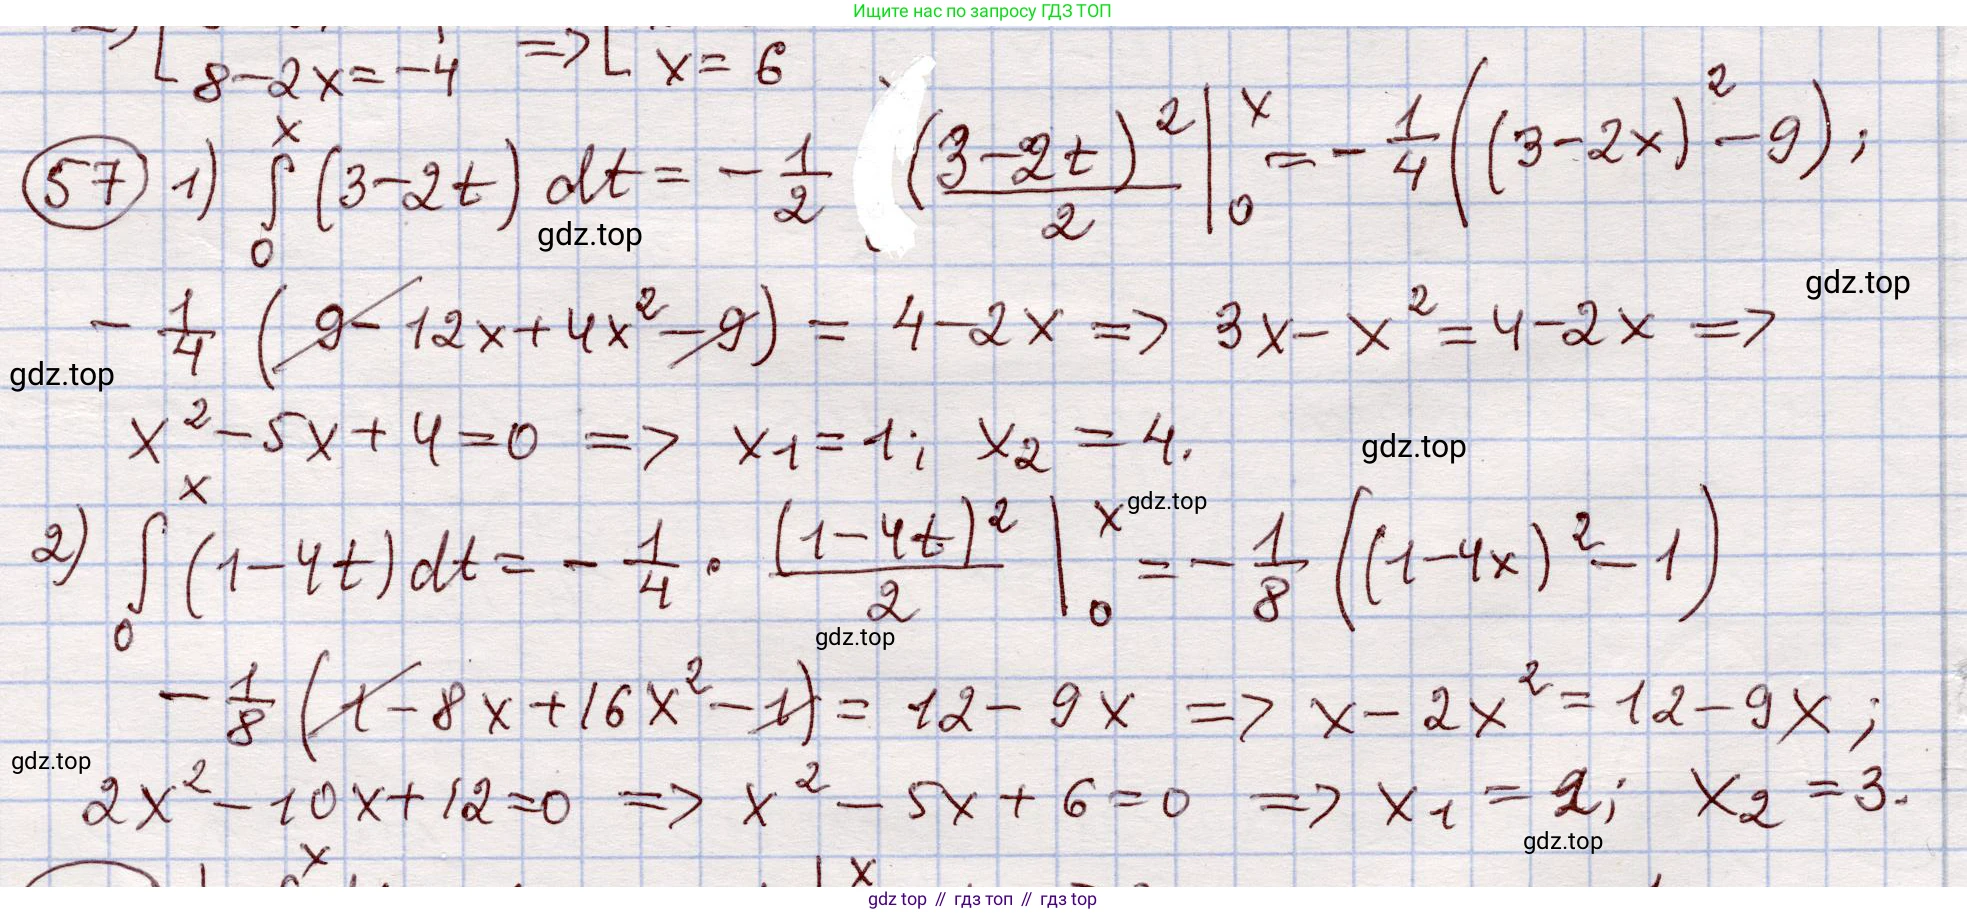 Ищите нас по запросу ГДЗ ТОП
8-2x=-4 => x=6
57 1) ∫₀ˣ (3-2t) dt = -1/2 (3-2t)²/2 |₀ˣ = -1/4((3-2x)²-9);
gdz.top
gdz.top
-1/4 (9-12x+4x²-9) = 4-2x => 3x-x²=4-2x =>
gdz.top
x²-5x+4=0 => x₁=1; x₂=4.
gdz.top
gdz.top
2) ∫₀ˣ (1-4t)dt = -1/4 · (1-4t)²/2 |₀ˣ = -1/8 ((1-4x)²-1)
gdz.top
-1/8 (1-8x+16x²-1) = 12-9x => x-2x²=12-9x;
gdz.top
2x²-10x+12=0 => x²-5x+6=0 => x₁=2; x₂=3.
gdz.top
gdz top // гдз топ // гдз top